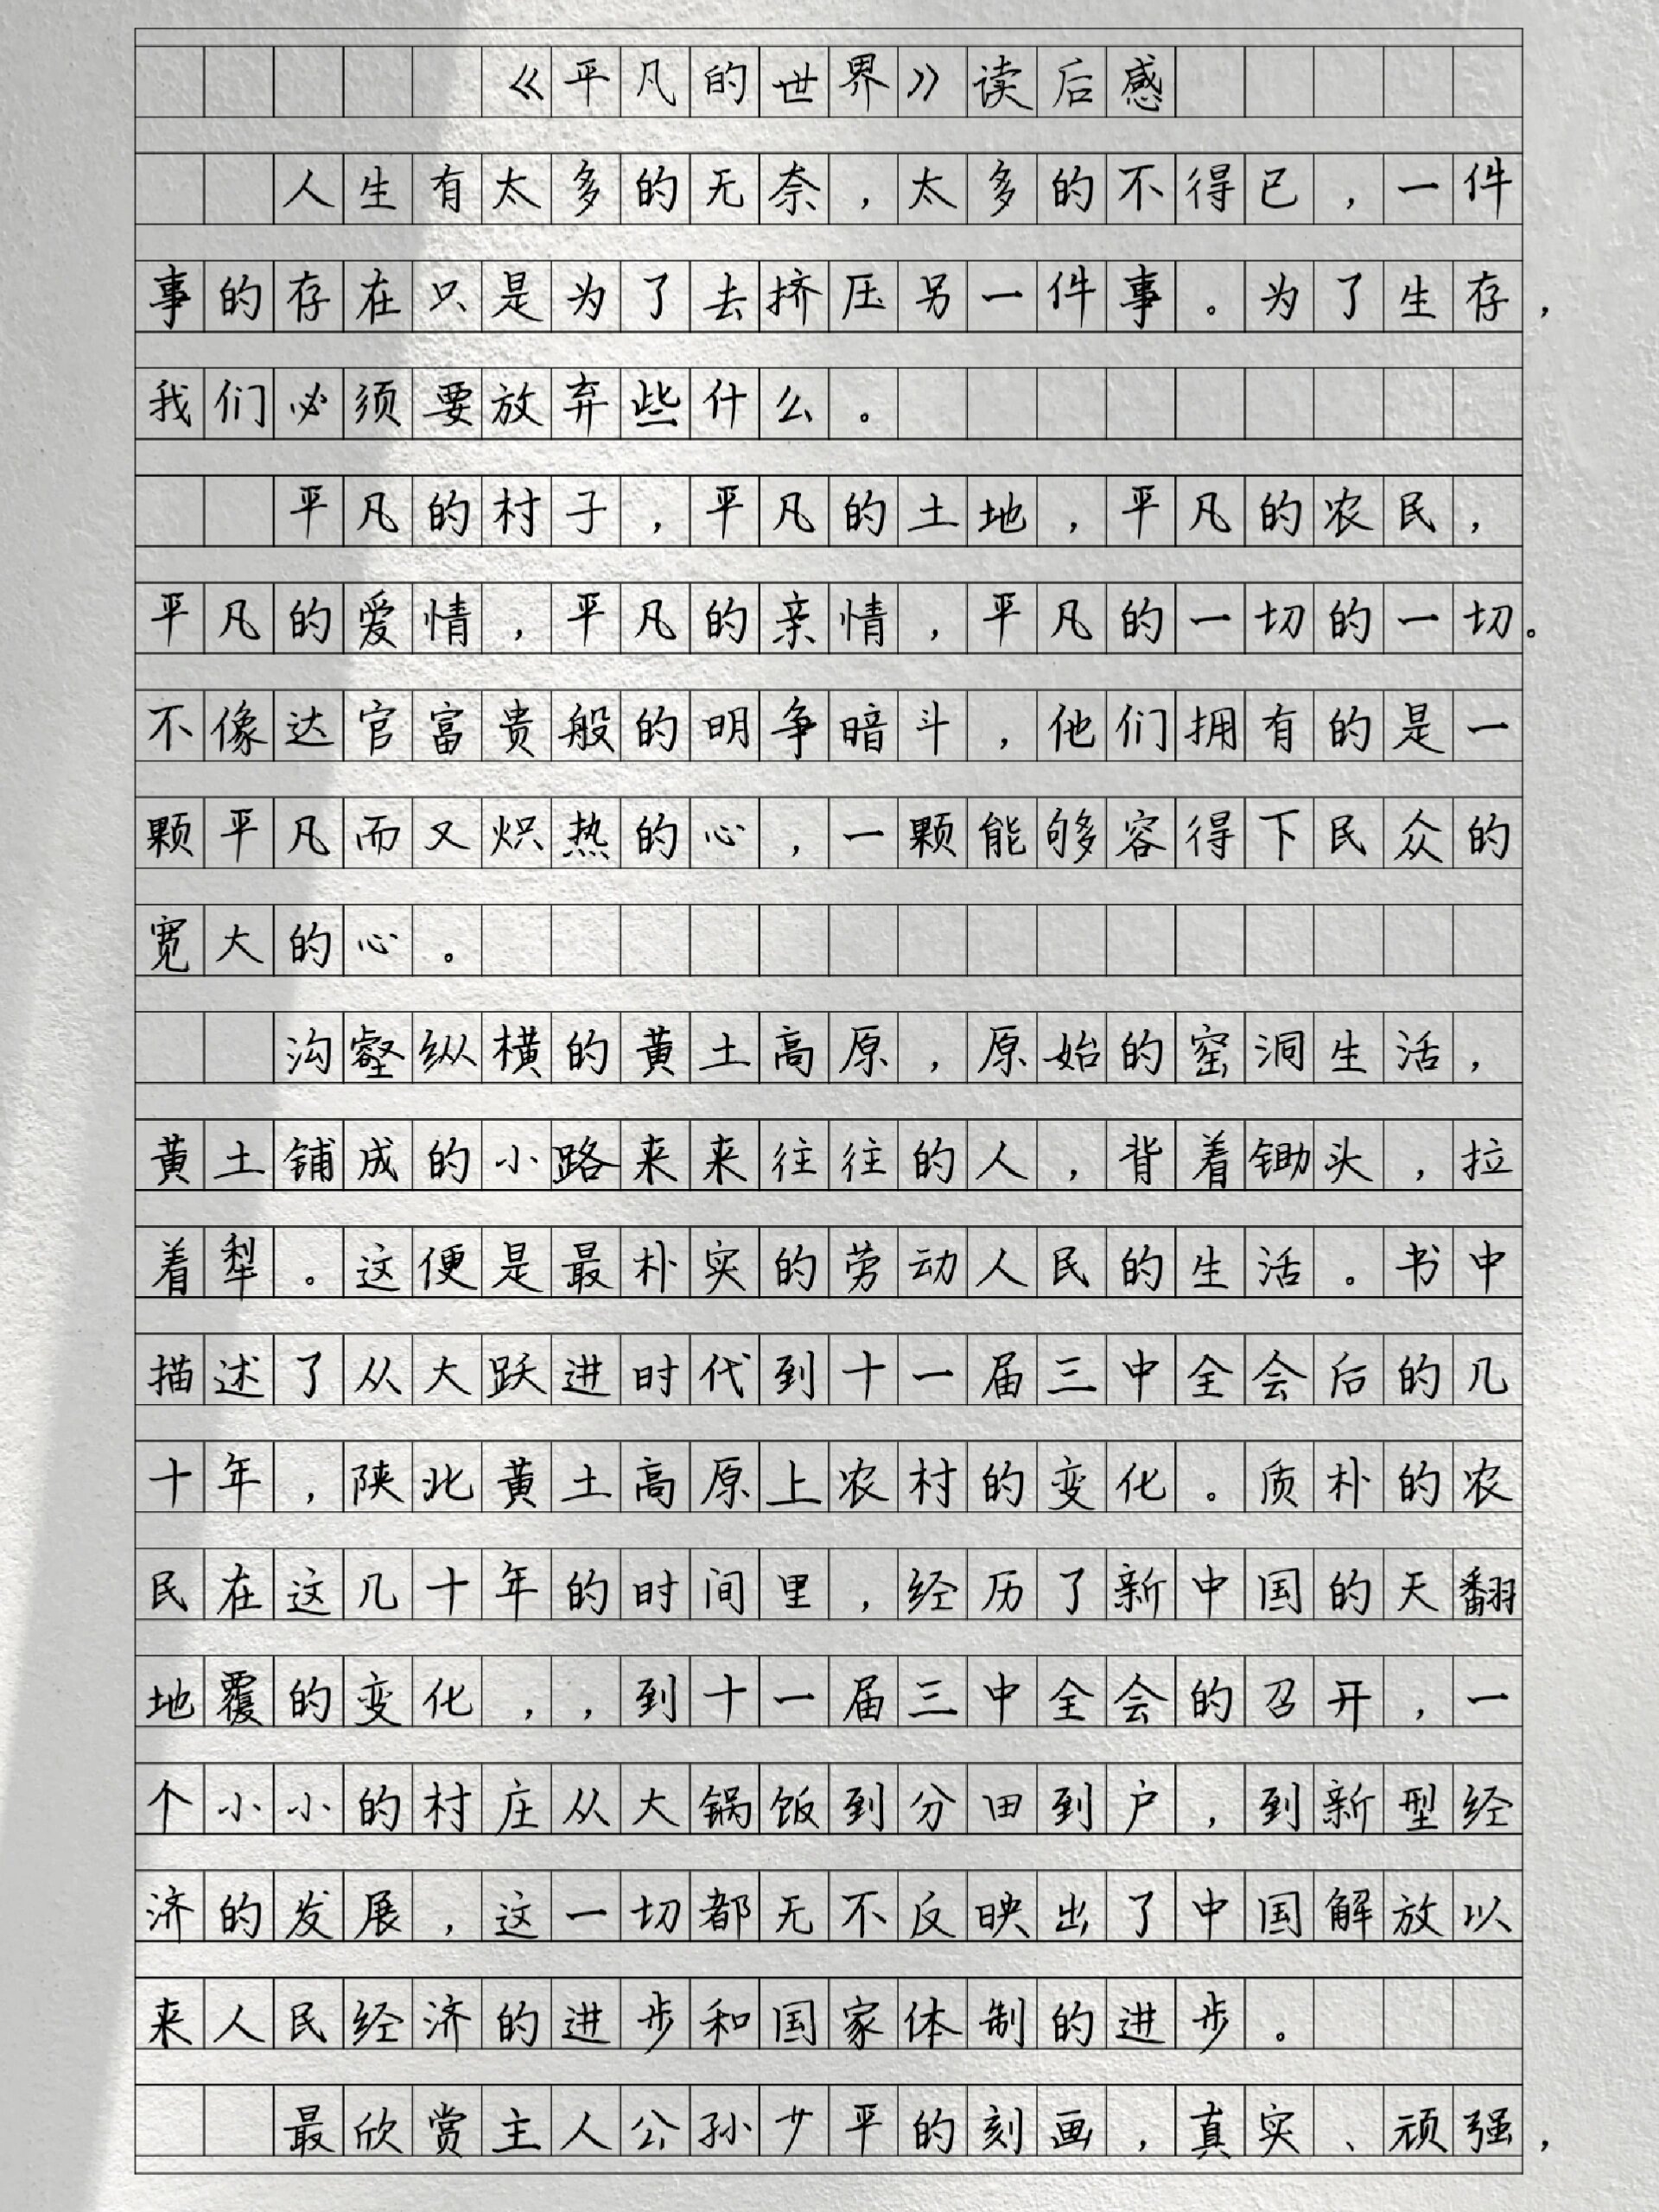 《平凡的世界》读后感
人生有太多的无奈，太多的不得已，一件
事的存在只是为了去挤压另一件事。为了生存，
我们必须要放弃些什么。
平凡的村子，平凡的土地，平凡的农民，
平凡的爱情，平凡的亲情，平凡的一切的一切。
不像达官富贵般的明争暗斗，他们拥有的是一
颗平凡而又炽热的心，一颗能够容得下民众的
宽大的心。
沟壑纵横的黄土高原，原始的窑洞生活，
黄土铺成的小路来来往往的人，背着锄头，拉
着犁。这便是最朴实的劳动人民的生活。书中
描述了从大跃进时代到十一届三中全会后的几
十年，陕北黄土高原上农村的变化。质朴的农
民在这几十年的时间里，经历了新中国的天翻
地覆的变化，，到十一届三中全会的召开，一
个小小的村庄从大锅饭到分田到户，到新型经
济的发展，这一切都无不反映出了中国解放以
来人民经济的进步和国家体制的进步。
最欣赏主人公孙少平的刻画，真实、顽强，